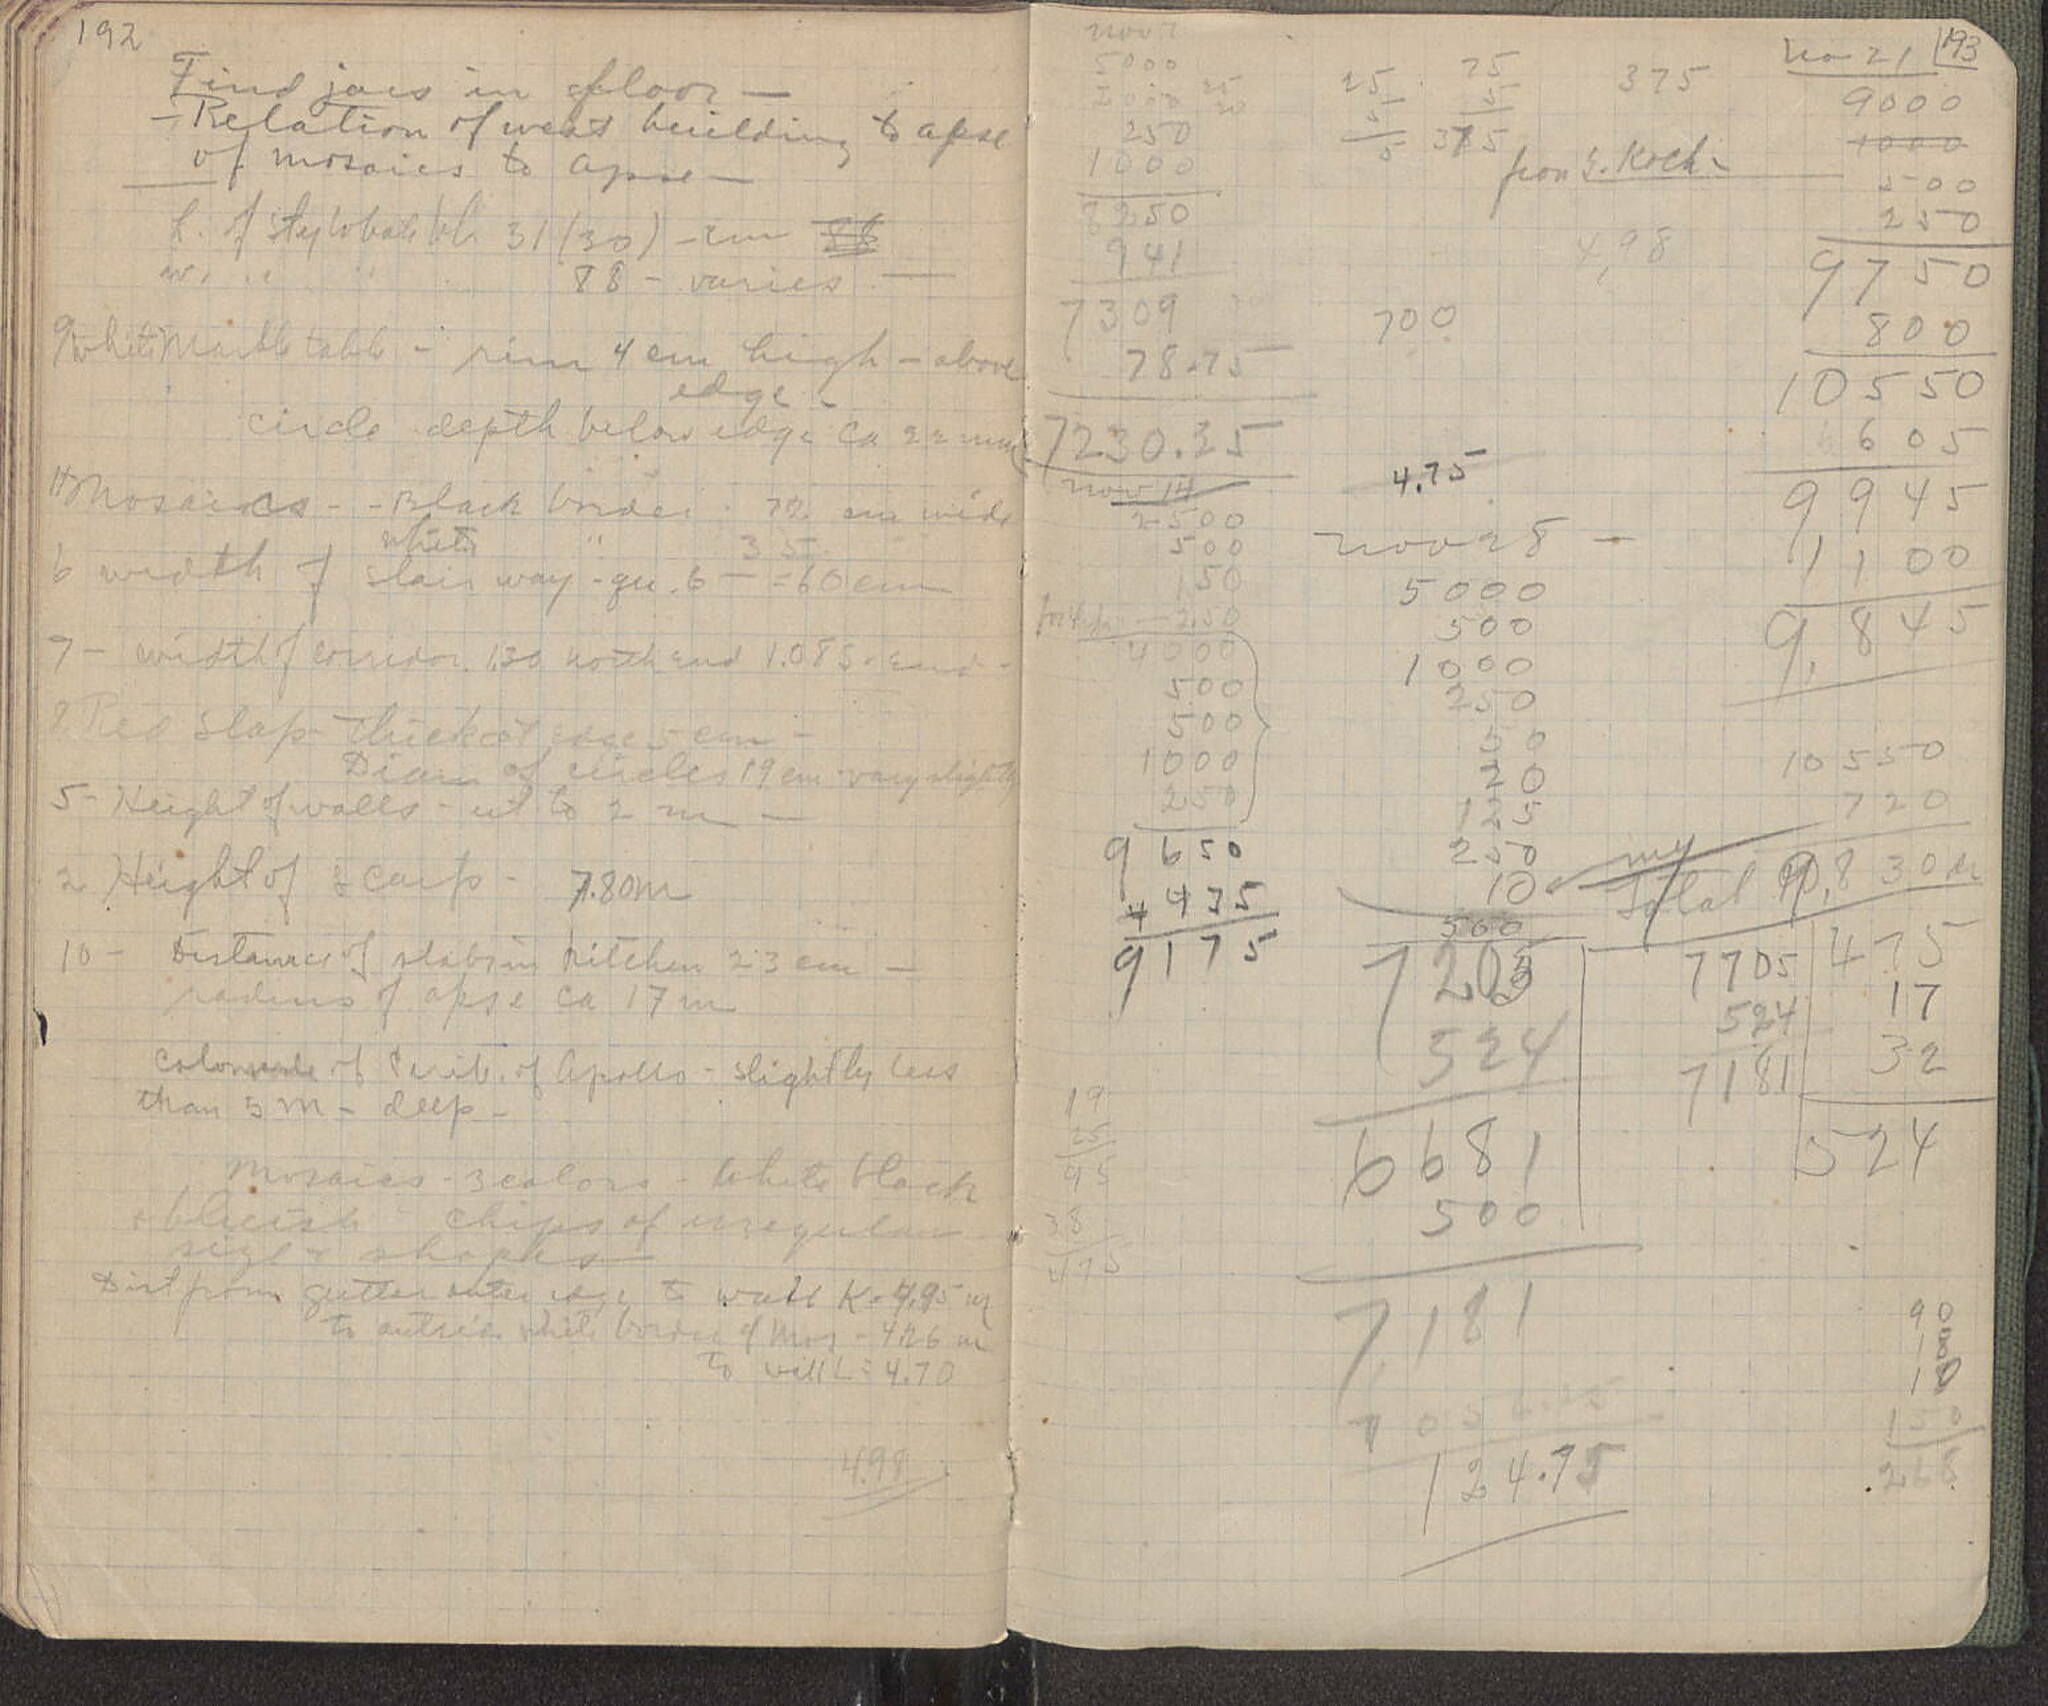 192
Find jars in floor —
- Relation of west building to apse
of mosaics to apse —
h. of stylobate bl. 31 (30) - cm 88
w. " " 88 - varies —
9 White Marble table - rim 4 cm high - above
edge -
circle depth below edge ca 22 mm
11 Mosaics - - Black border 72 cm wide
white " 35
6 width of stair way - 6 — = 60 cm
7 - width of corridor 1.30 north end 1.08 S. end -
8 Red Slab - thick at edge 5 cm -
Diam of circles 19 cm - vary slightly
5 - Height of walls - up to 2 m —
2 Height of scarp - 7.80 m
10 - Distance of slabs in kitchen 23 cm —
radius of apse ca 17 m
colonnade of Perib. of Apollo - slightly less
than 5 m - deep -
Mosaics - 3 colors - White black
+ bluish - chips of irregular
size + shapes —
Dist from gutter outer edge to wall K = 4.95 m
to outside white border of Mos - 4.26 m
to wall L = 4.70
4.98
193
Nov 7
5000
2000
250
1000
8250
941
7309
78.75
7230.25
Nov 14
2500
500
150
250
4000
500
500
1000
250
9650
475
9175
19
25
95
38
475
25
5
5
75
5
375
375
from E. Koch -
4,98
700
4.75
Nov 28 —
5000
500
1000
250
50
20
125
250
10
500
7205
524
6681
500
7,181
7056.25
124.75
Nov 21
9000
1000
500
250
9750
800
10550
605
9945
1100
9,845
10550
720
my
Total 9,830
7705
524
7181
475
17
32
524
90
10
150
265